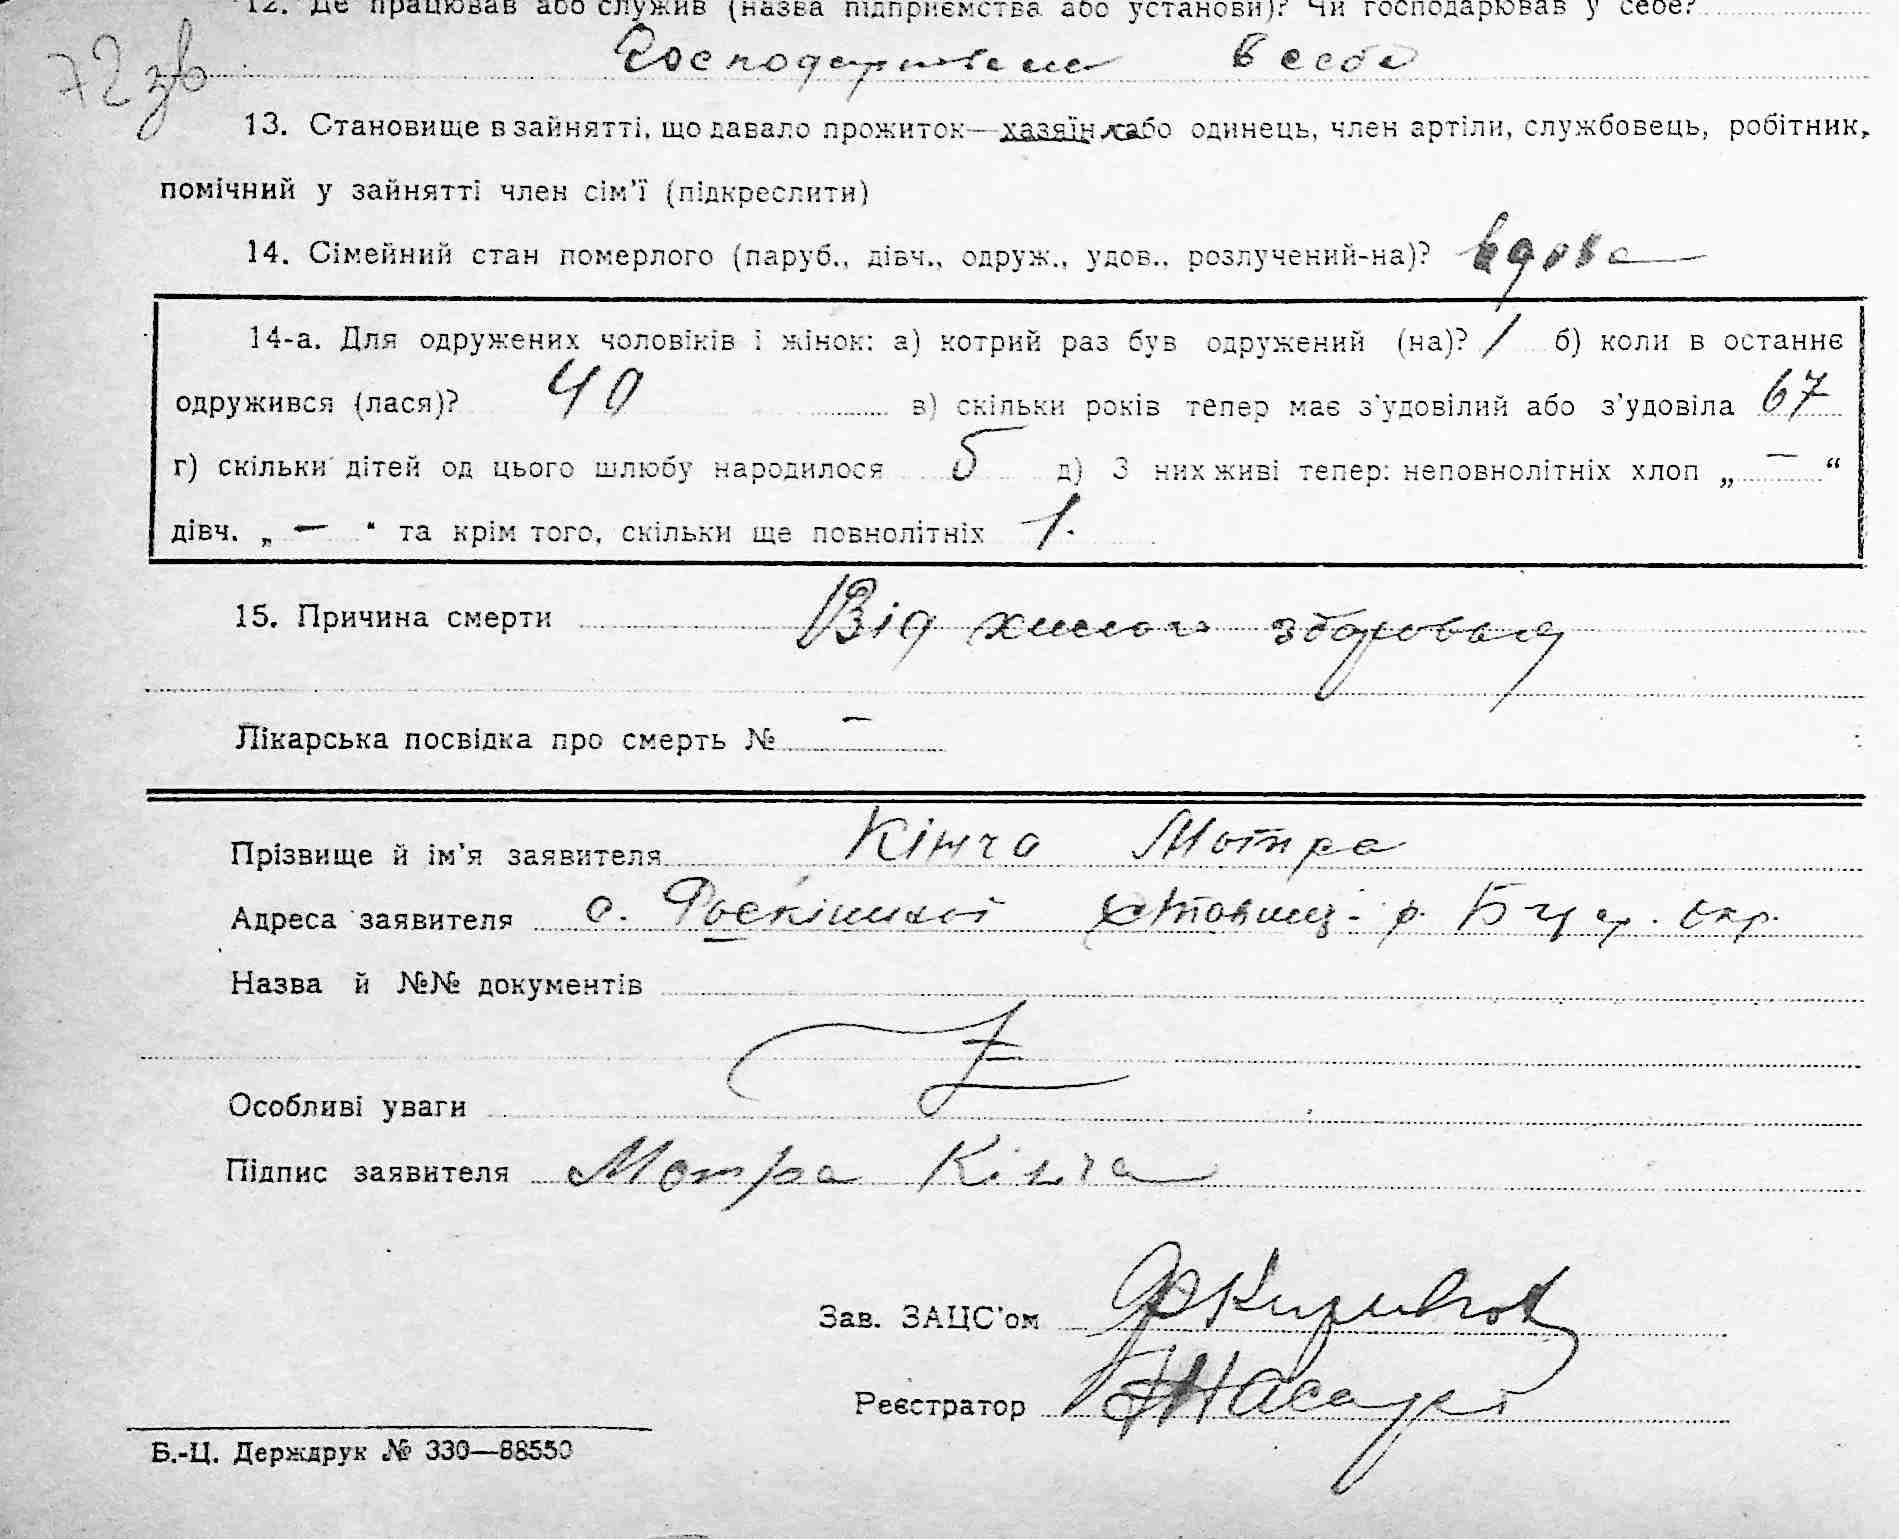 12. Де працював або служив (назва підприємства або установи)? Чи господарював у себе?
72 зв
в себе
13. Становище в зайнятті, що давало прожиток—хазяїн або одинець, член артіли, службовець, робітник,
помічний у зайнятті член сім'ї (підкреслити)
14. Сімейний стан померлого (паруб., дівч., одруж., удов., розлучений-на)? вдова
14-а. Для одружених чоловіків і жінок: а) котрий раз був одружений (на)? 1 б) коли в останнє
одружився (лася)? 40 в) скільки років тепер має з'удовілий або з'удовіла 67
г) скільки дітей од цього шлюбу народилося 5 д) З них живі тепер: неповнолітніх хлоп „ — “
дівч. „ — “ та крім того, скільки ще повнолітніх 1.
15. Причина смерти Від хилого здоровья
Лікарська посвідка про смерть № —
Прізвище й ім'я заявителя Кінча Мотря
Адреса заявителя с. р. окр.
Назва й №№ документів
Особливі уваги
Підпис заявителя Мотра Кінча
Зав. ЗАЦС'ом
Реєстратор
Б.-Ц. Держдрук № 330—88550